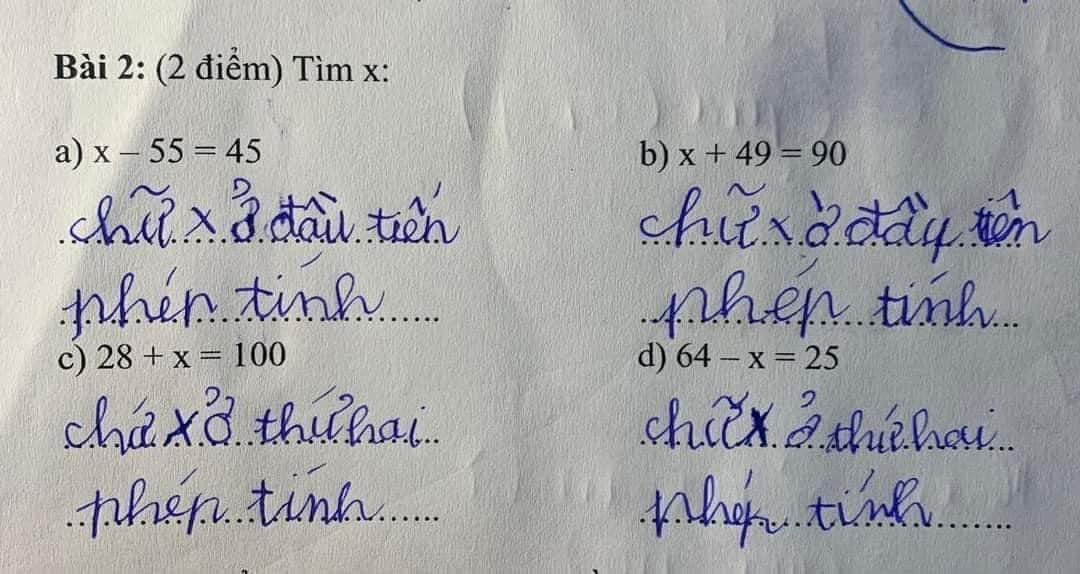 Bài 2: (2 điểm) Tìm x:
a) x – 55 = 45
chữ x ở đầu tiến
phép tính
b) x + 49 = 90
chữ x ở đầy tiên
phép tính
c) 28 + x = 100
chứ x ở thứ hai
phép tính
d) 64 – x = 25
chữ x ở thứ hai
phép tính